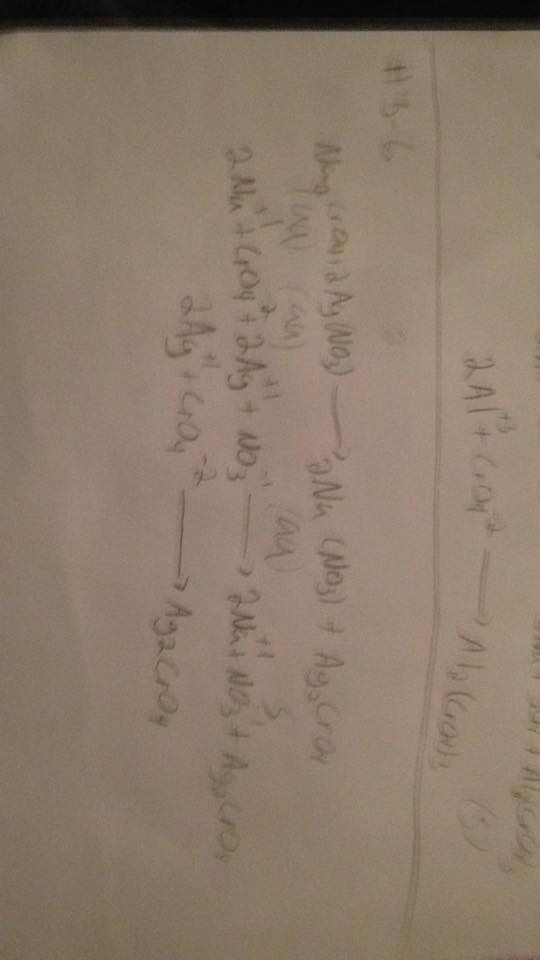 + Al2(CrO4)3
2Al+3 + CrO4-2 → Al2(CrO4)3 (s)
#3-6
Na2CrO4+2Ag(NO3) → 2Na(NO3) + Ag2CrO4
(aq) (aq) (aq) S
2Na+1+CrO4-2+2Ag+1+NO3-1 → 2Na+1+NO3-1+Ag2CrO4
2Ag+1+CrO4-2 → Ag2CrO4